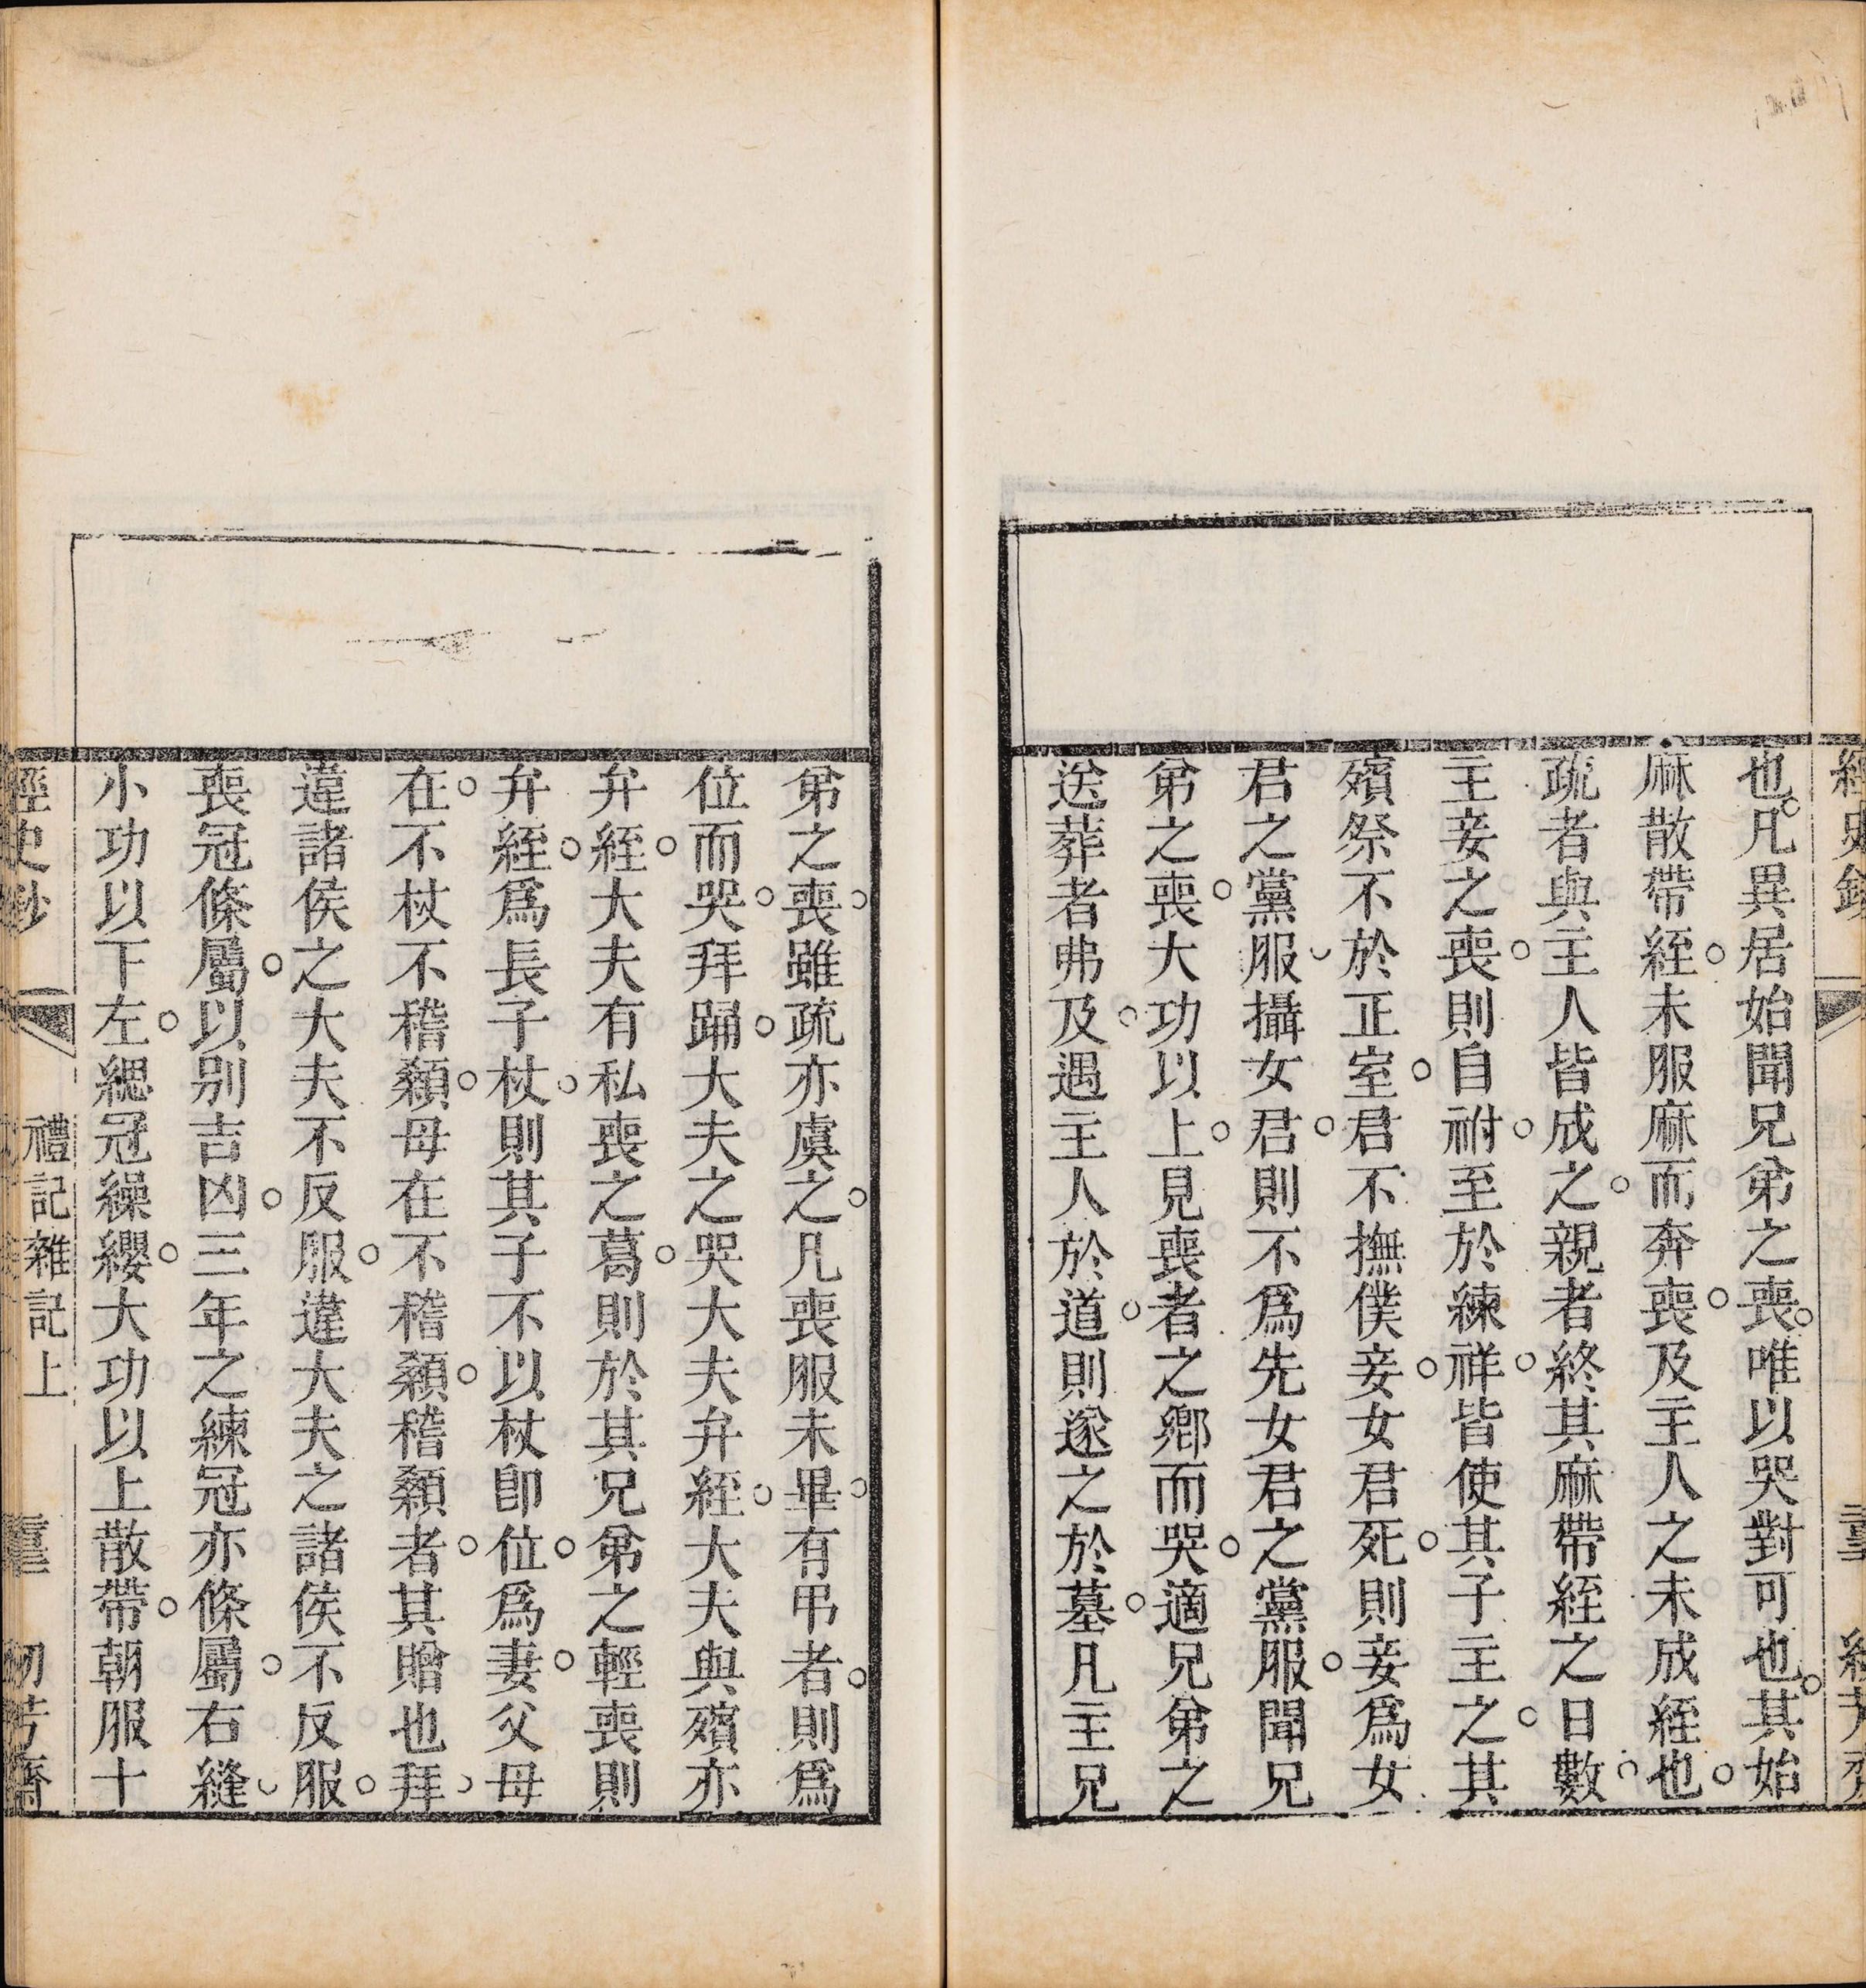 也。凡異居始聞兄弟之喪。唯以哭對可也。其始
麻散帶絰。未服麻而奔喪。及主人之未成絰也。
疏者與主人皆成之。親者終其麻帶絰之日數。
主妾之喪。則自祔。至於練祥。皆使其子主之。其
殯祭不於正室。君不撫僕妾。女君死。則妾爲女
君之黨服。攝女君。則不爲先女君之黨服。聞兄
弟之喪。大功以上。見喪者之鄉而哭。適兄弟之
送葬者弗及。遇主人於道。則遂之於墓。凡主兄
弟之喪。雖疏亦虞之。凡喪服未畢。有弔者。則爲
位而哭。拜踊。大夫之哭大夫弁絰。大夫與殯亦
弁絰。大夫有私喪之葛。則於其兄弟之輕喪則
弁絰。爲長子杖。則其子不以杖卽位。爲妻。父母
在。不杖不稽顙。母在不稽顙。稽顙者。其贈也拜。
違諸侯之大夫不反服。違大夫之諸侯不反服。
喪冠條屬。以別吉凶。三年之練冠亦條屬。右縫。
小功以下左。緦冠繰纓。大功以上散帶。朝服十
禮記雜記上